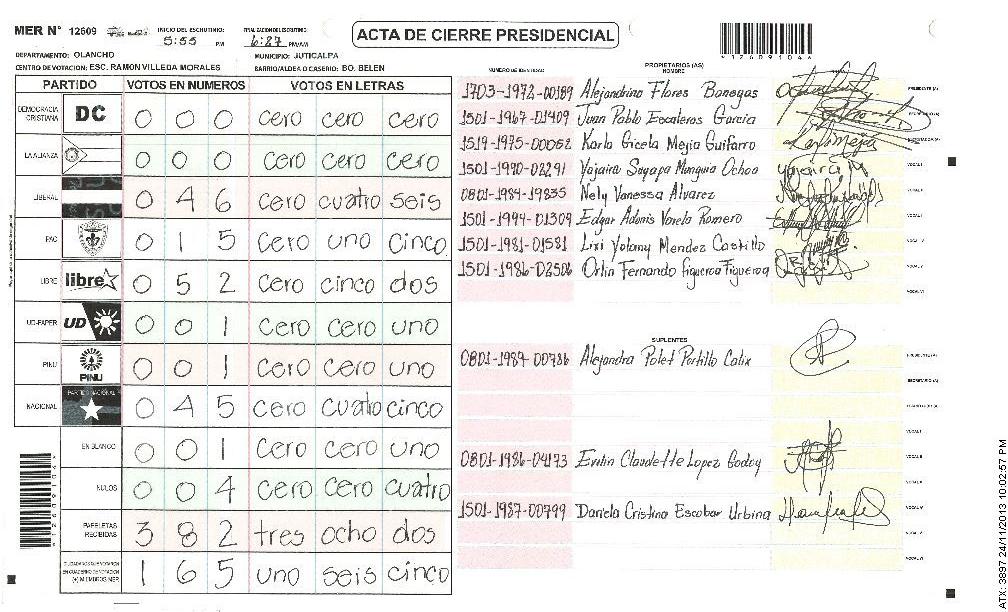 MER N° 12609 INICIO DEL ESCRUTINIO: 5:55 PM FINALIZACION DEL ESCRUTINIO: 6:27 PM/AM
ACTA DE CIERRE PRESIDENCIAL
DEPARTAMENTO: OLANCHO MUNICIPIO: JUTICALPA
CENTRO DE VOTACION: ESC. RAMON VILLEDA MORALES BARRIO/ALDEA O CASERIO: BO. BELEN
PARTIDO VOTOS EN NUMEROS VOTOS EN LETRAS
DEMOCRACIA CRISTIANA DC 0 0 0 cero cero cero
LA ALIANZA 0 0 0 cero cero cero
LIBERAL 0 4 6 cero cuatro seis
PAC 0 1 5 cero uno cinco
LIBRE libre 0 5 2 cero cinco dos
UD-FAPER UD 0 0 1 cero cero uno
PINU PINU 0 0 1 cero cero uno
NACIONAL PARTIDO NACIONAL 0 4 5 cero cuatro cinco
EN BLANCO 0 0 1 cero cero uno
NULOS 0 0 4 cero cero cuatro
PAPELETAS RECIBIDAS 3 8 2 tres ocho dos
CIUDADANOS QUE VOTARON EN CUADERNO DE VOTACION (+) MIEMBROS MER 1 6 5 uno seis cinco
NUMERO DE IDENTIDAD PROPIETARIOS (AS) NOMBRE
1703-1972-00189 Alejandrino Flores Banegas PRESIDENTE (A)
1501-1967-01409 Juan Pablo Escaleros Garcia
1519-1975-00062 Karla Gicela Mejia Guifarro
1501-1970-02291 Yajaira Suyapa Munguia Ochoa VOCAL I
0801-1984-19835 Nely Vanessa Alvarez
1501-1994-01309 Edgar Adonis Varela Romero
1501-1981-01581 Lixi Yolany Mendez Castillo
1501-1986-02506 Orlin Fernando Figueroa Figueroa
SUPLENTES
0801-1984-00736 Alejandra Polet Portillo Calix PRESIDENTE (A)
SECRETARIO (A)
0801-1986-04173 Evilin Claudette Lopez Godoy
1501-1987-00799 Daniela Cristina Escobar Urbina
ATX: 3897 24/11/2013 10:02:57 PM